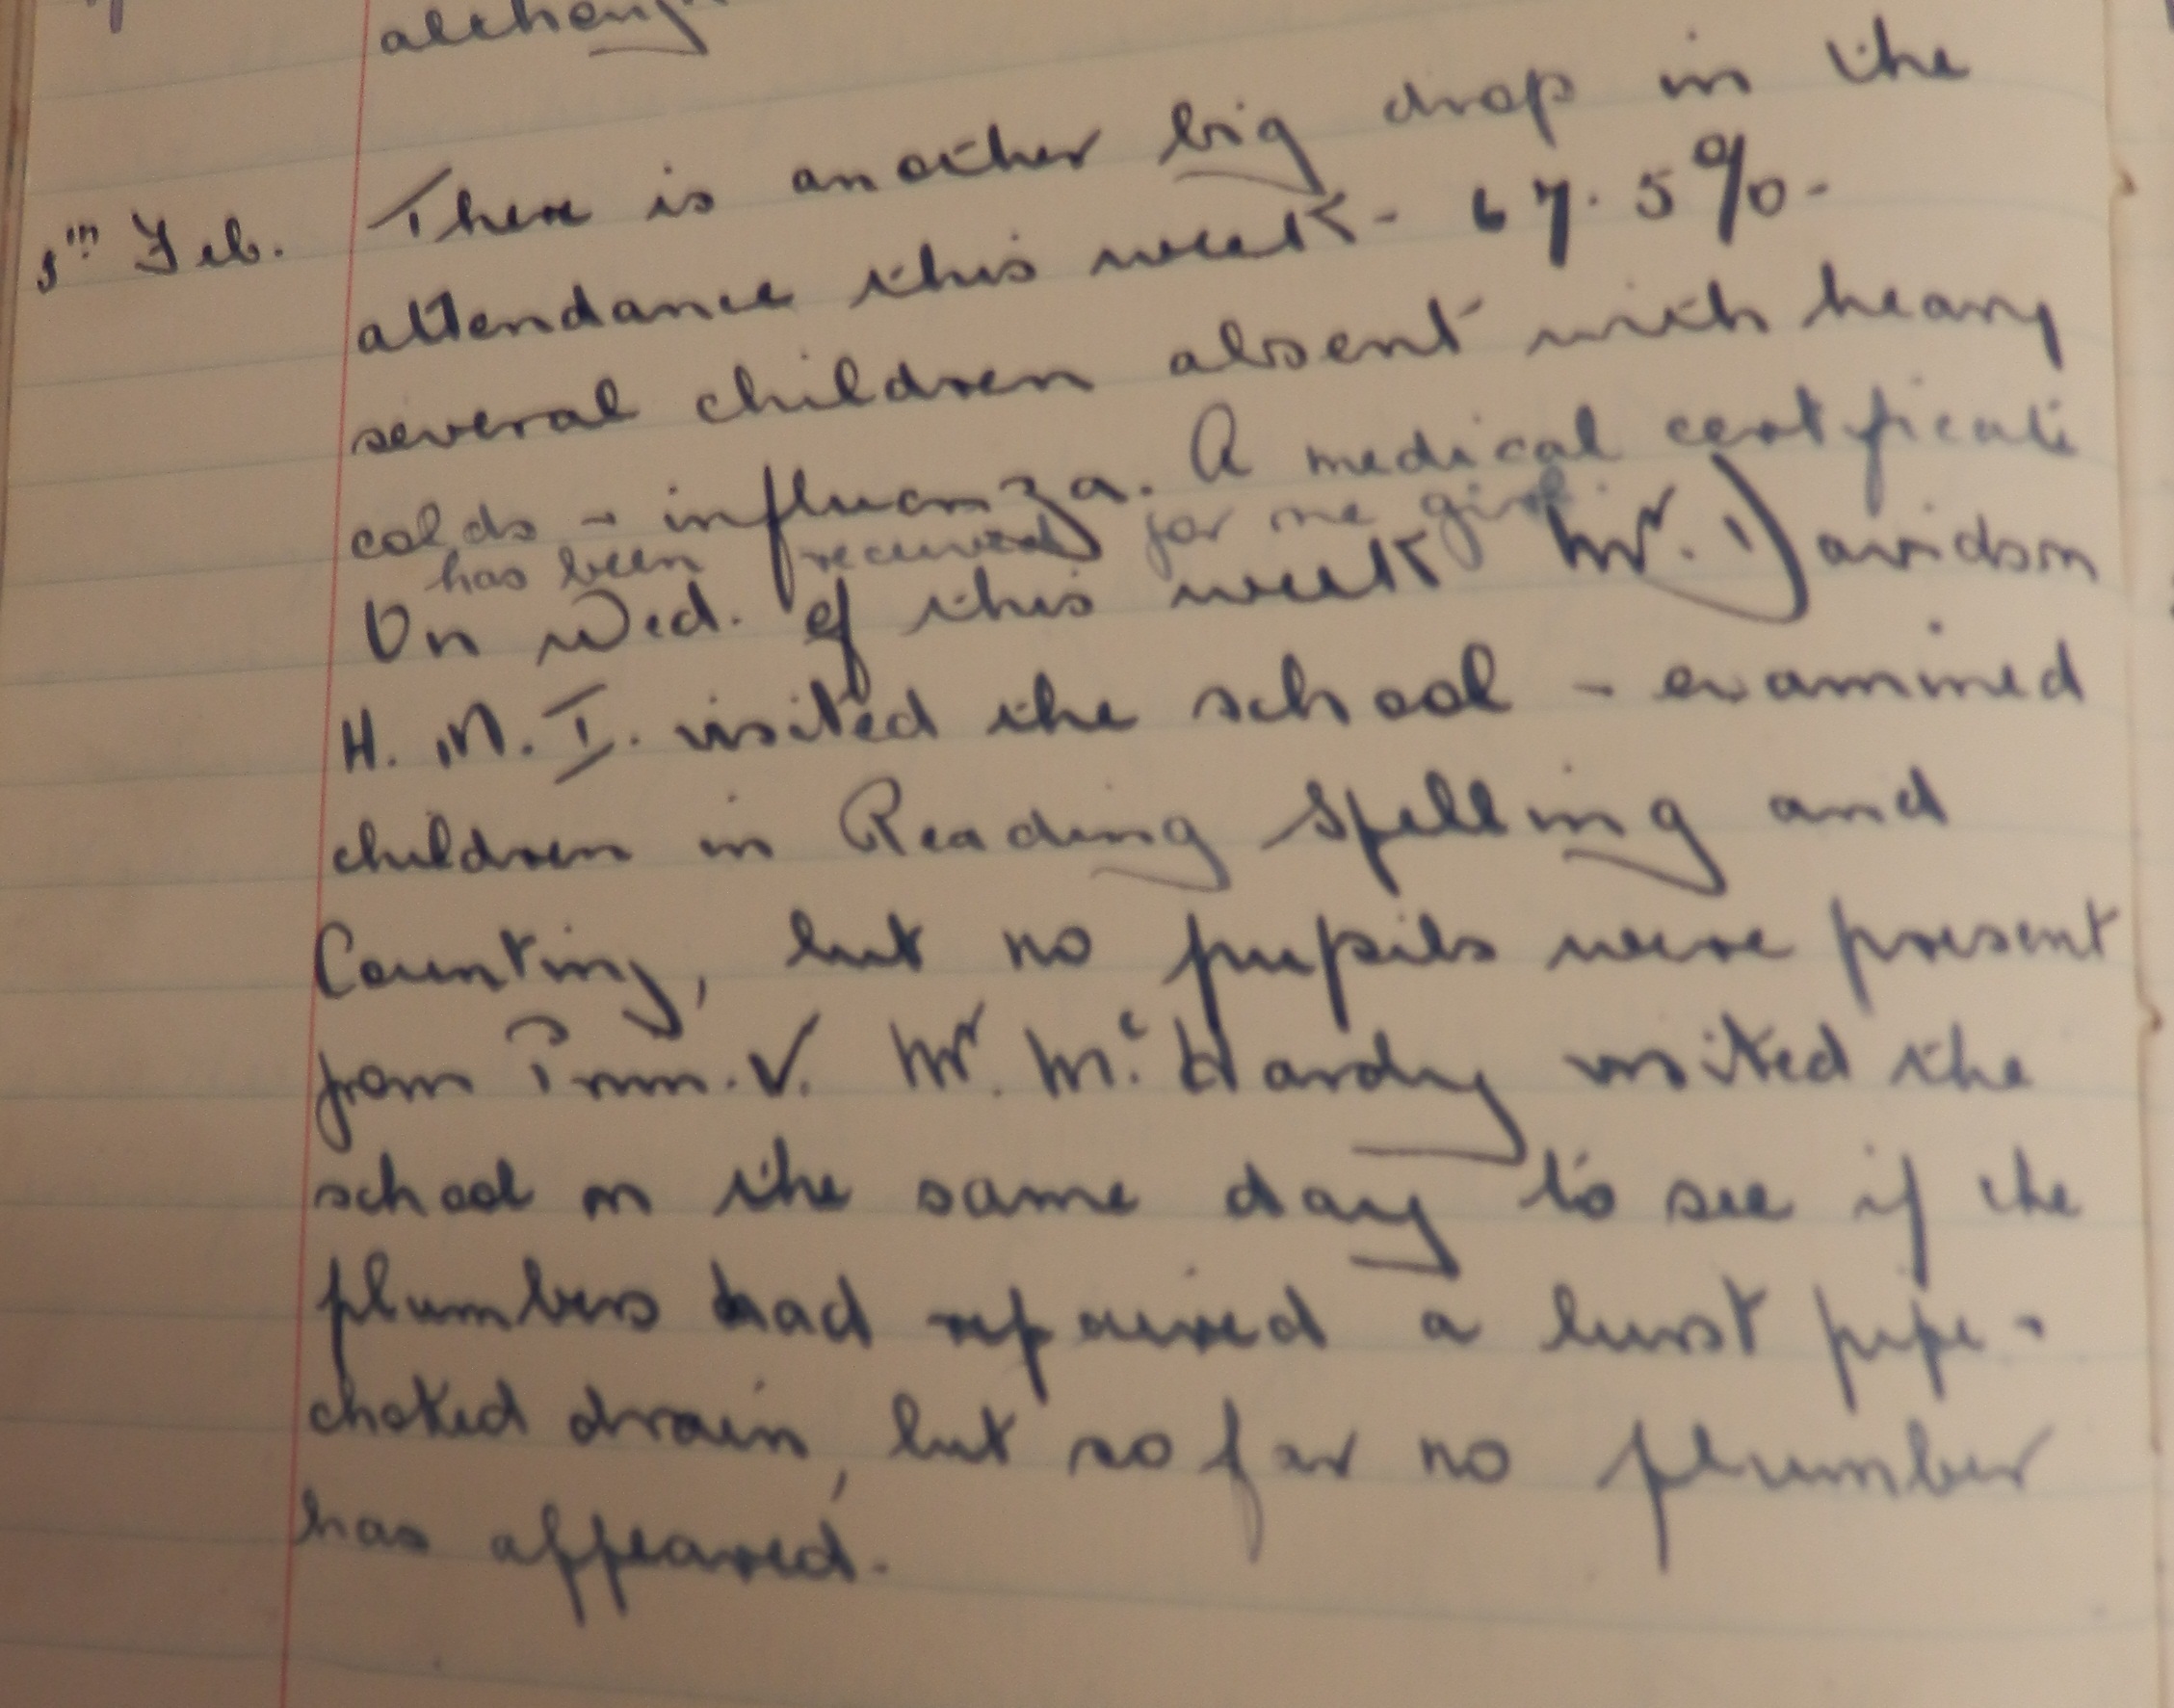 5th Feb. There is another big drop in the
attendance this week - 67.5% -
several children absent with heavy
colds - influenza. A medical certificate
has been received for one girl.
On Wed. of this week Mr. Davidson
H. M. I. visited the school - examined
children in Reading Spelling and
Counting, but no pupils were present
from Prim. V. Mr. McHardy visited the
school on the same day to see if the
plumbers had repaired a burst pipe -
choked drain, but so far no plumber
has appeared.